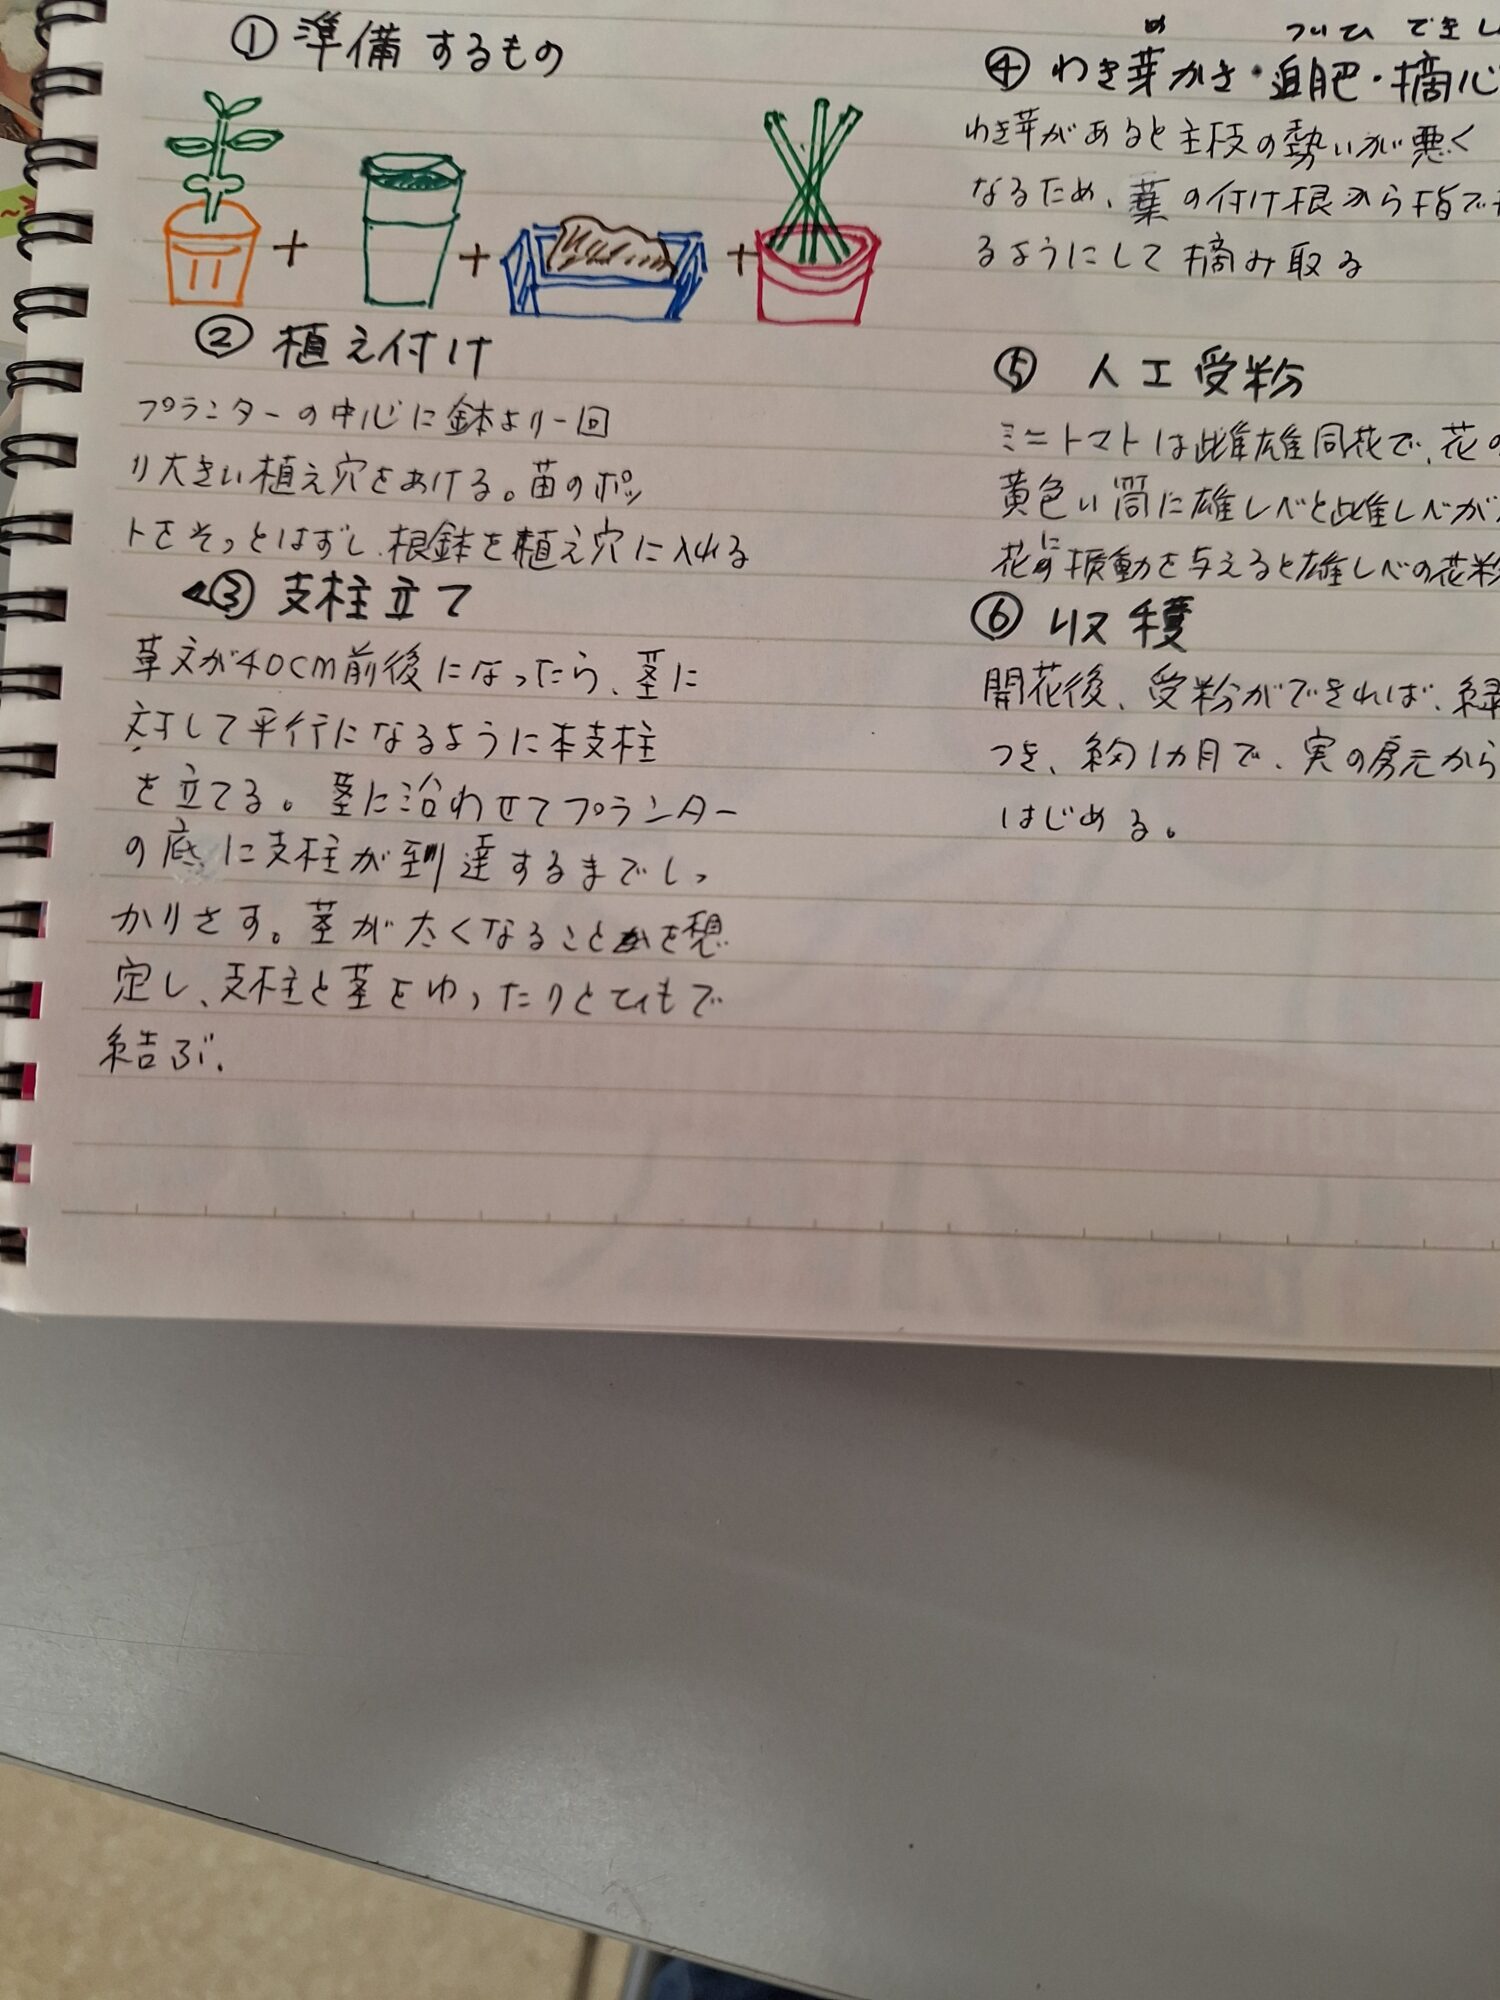 ①準備するもの
②植え付け
プランターの中心に鉢より一回
り大きい植え穴をあける。苗のポッ
トをそっとはずし、根鉢を植え穴に入れる
③支柱立て
草丈が40cm前後になったら、茎に
対して平行になるように本支柱
を立てる。茎に沿わせてプランター
の底に支柱が到達するまでしっ
かりさす。茎が太くなることを想
定し、支柱と茎をゆったりとひもで
結ぶ.
め ついひ できし
④わき芽かき・追肥・摘心
わき芽があると主枝の勢いが悪く
なるため、葉の付け根から指で
るようにして摘み取る
⑤人工受粉
ミニトマトは雌雄同花で、花の
黄色い筒に雄しべと雌しべが
花に振動を与えると雄しべの花粉
⑥収穫
開花後、受粉ができれば、緑
つき、約1カ月で、実の房元から
はじめる。